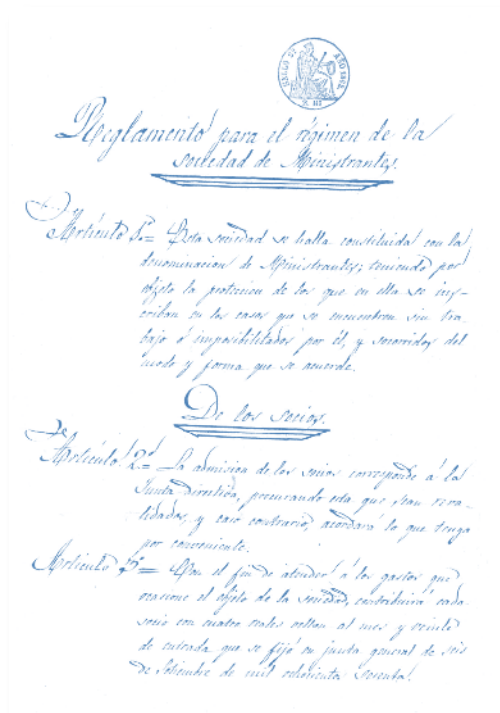 SELLO 9º AÑO
Reglamento para el régimen de la
Sociedad de Ministrantes.
Artículo 1º = Esta sociedad se halla constituida con la
denominacion de Ministrantes; teniendo por
objeto la proteccion de los que en ella se ins-
criban en los casos que se encuentren sin tra-
bajo ó imposibilitados por él, y socorridos del
modo y forma que se acuerde.
De los socios.
Artículo 2º = La admision de los socios corresponde á la
Junta Directiva, procurando esta que sean reva-
lidados, y caso contrario, acordará lo que tenga
por conveniente.
Artículo 3º = Con el fin de atender á los gastos que
ocasione el objeto de la sociedad, contribuirá cada
socio con cuatro reales vellon al mes y veinte
de entrada que se fijó en junta general de seis
de Setiembre de mil ochocientos sesenta.